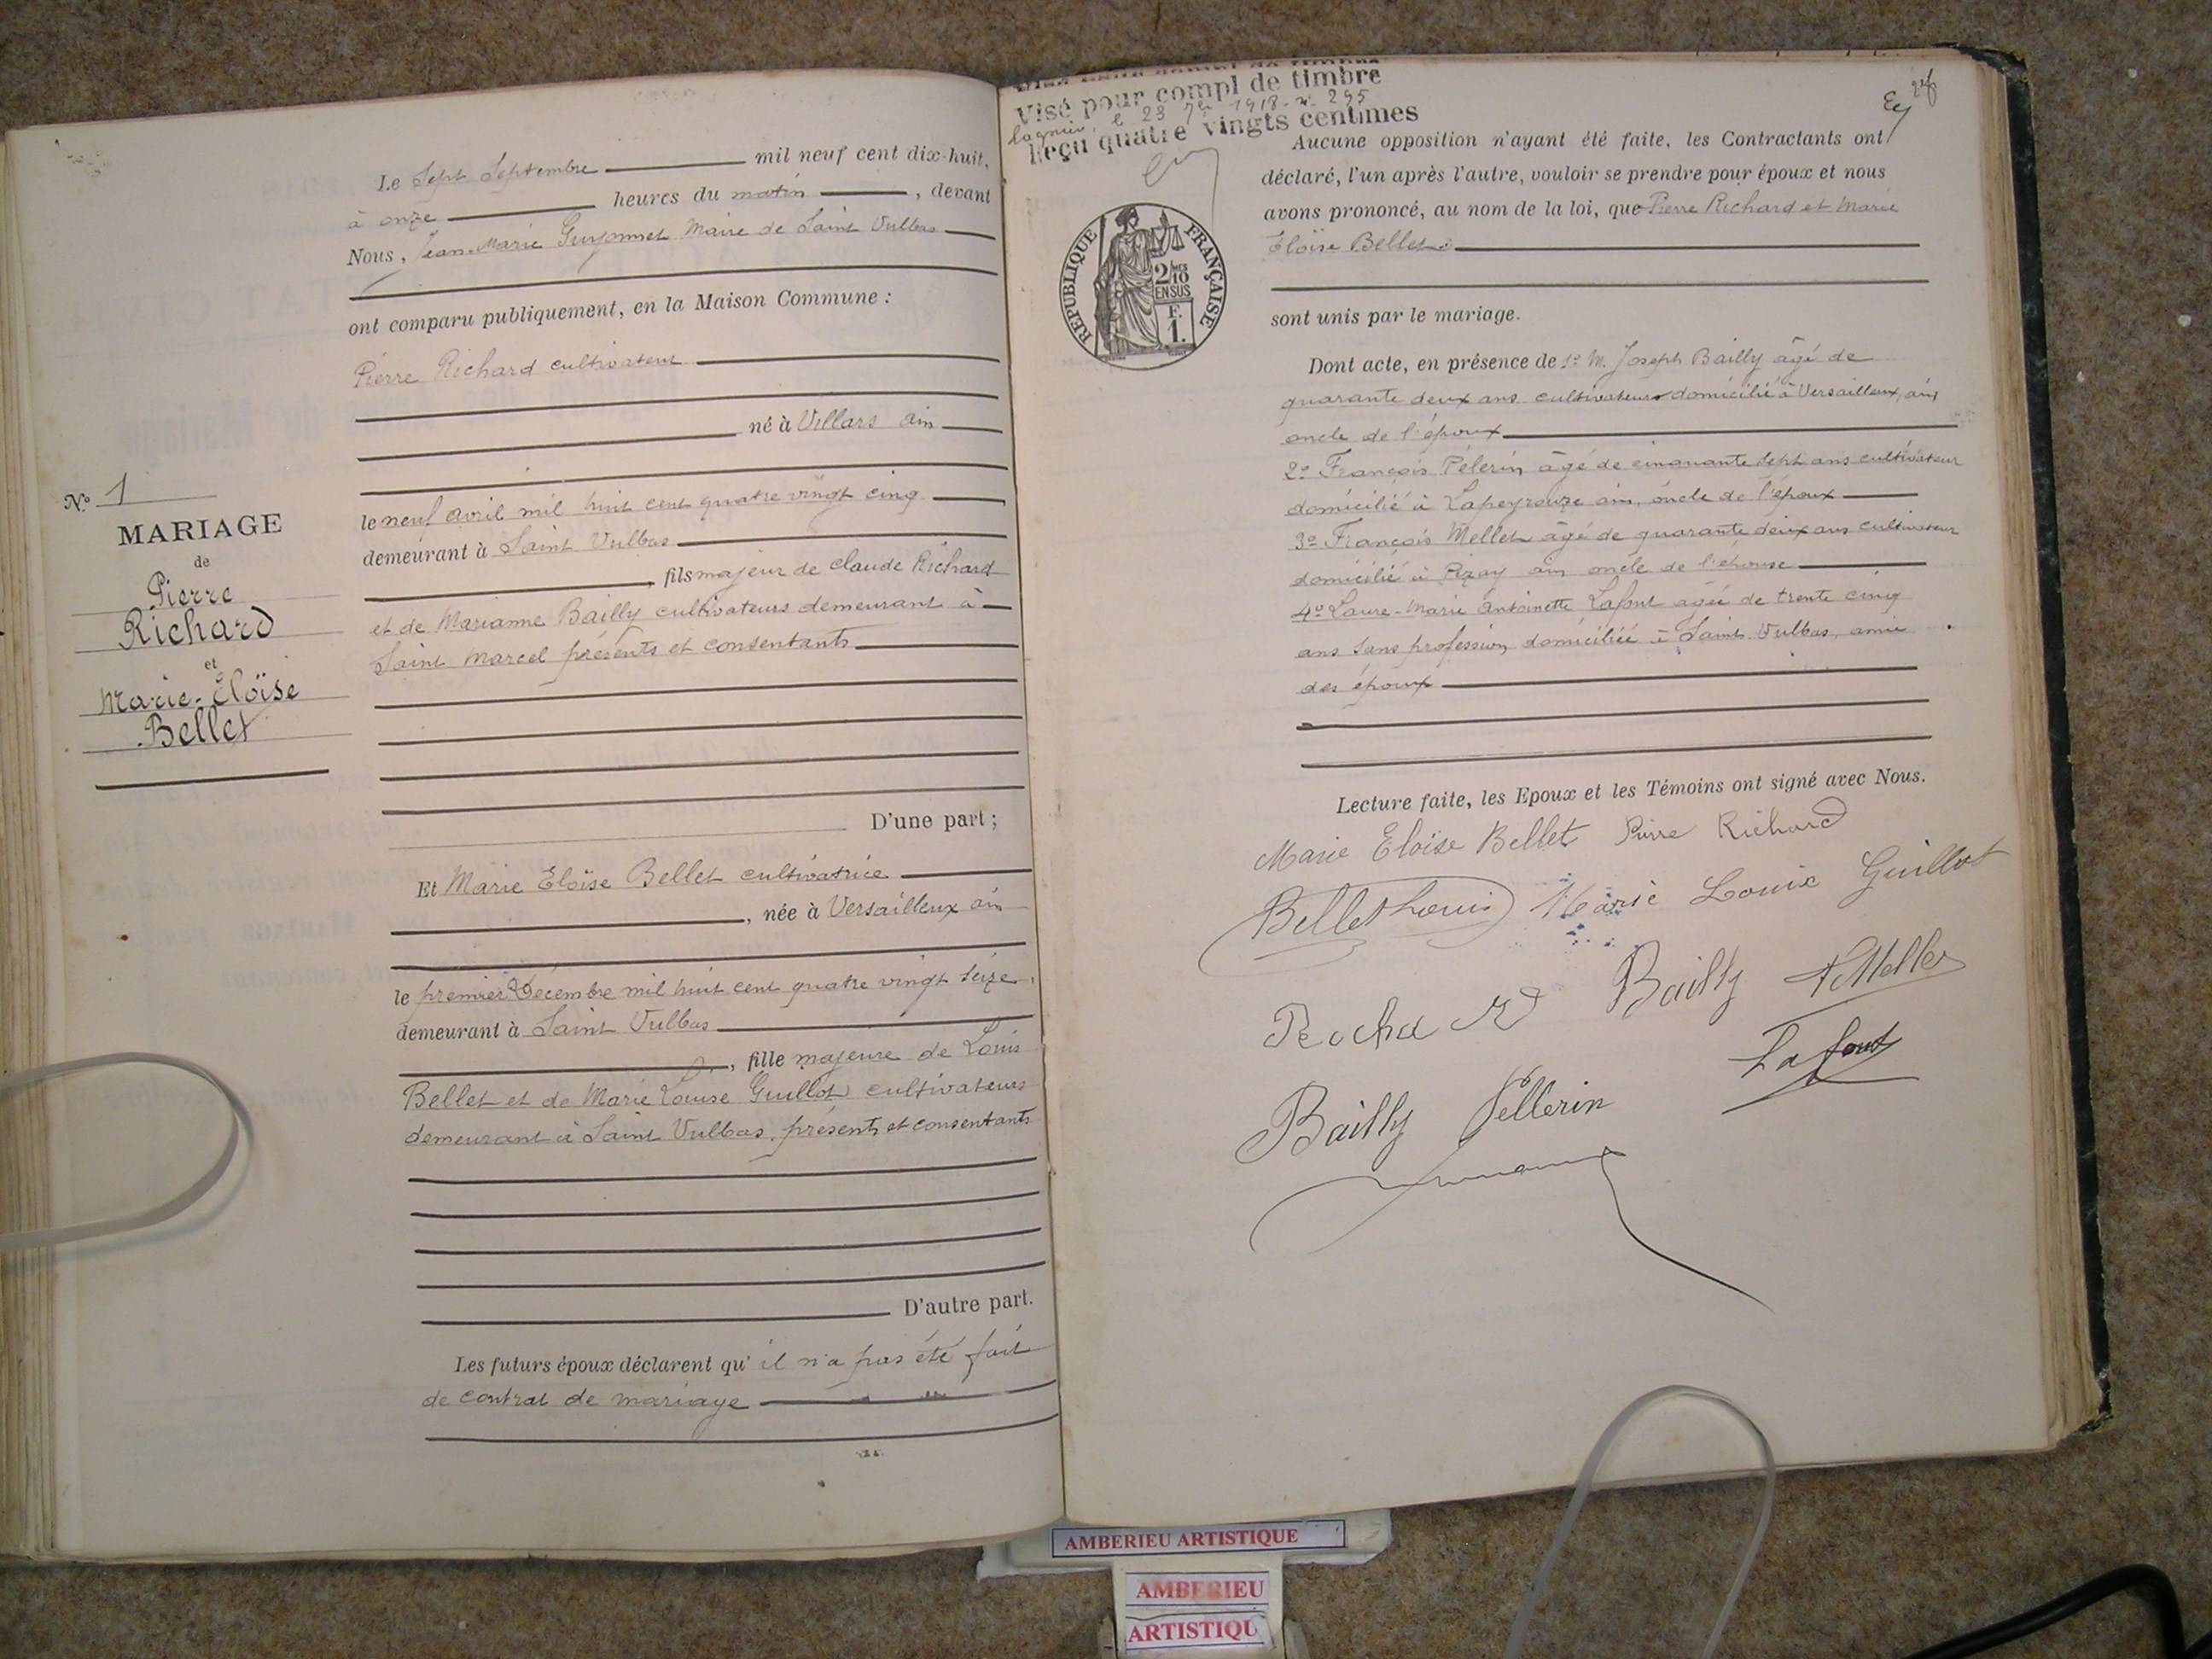 Le Sept Septembre mil neuf cent dix-huit,
à onze heures du matin , devant
Nous, Jean-Marie Guyonnet Maire de Saint Vulbas
ont comparu publiquement, en la Maison Commune :
Pierre Richard cultivateur
né à Villars ain
le neuf avril mil huit cent quatre vingt cinq
demeurant à Saint Vulbas
, fils majeur de claude Richard
et de Marianne Bailly cultivateurs demeurant à
Saint Marcel présents et consentants
D'une part ;
Et Marie Eloïse Bellet cultivatrice
, née à Versailleux ain
le premier Décembre mil huit cent quatre vingt seize
demeurant à Saint Vulbas
, fille majeure de Louis
Bellet et de Marie Louise Guillot cultivateurs
demeurant à Saint Vulbas, présents et consentants
D'autre part.
Les futurs époux déclarent qu'il n'a pas été fait
de contrat de mariage
N° 1
MARIAGE
de
Pierre
Richard
et
Marie-Eloïse
Bellet
Visé pour compl de timbre
le 23 7bre 1918 n° 295
Reçu quatre vingts centimes
REPUBLIQUE FRANÇAISE
2/10
EN SUS
F.
1.
Aucune opposition n'ayant été faite, les Contractants ont
déclaré, l'un après l'autre, vouloir se prendre pour époux et nous
avons prononcé, au nom de la loi, que Pierre Richard et Marie
Eloïse Bellet
sont unis par le mariage.
Dont acte, en présence de 1° M. Joseph Bailly âgé de
quarante deux ans cultivateur domicilié à Versailleux, ain
oncle de l'époux
2° François Pélerin âgé de cinquante sept ans cultivateur
domicilié à Lapeyrouze ain, oncle de l'époux
3° François Mellet âgé de quarante deux ans cultivateur
domicilié à Pizay ain oncle de l'épouse
4° Laure-Marie Antoinette Lafont agée de trente cinq
ans sans profession domiciliée à Saint Vulbas, amie
des époux
Lecture faite, les Epoux et les Témoins ont signé avec Nous.
Marie Eloïse Bellet Pierre Richard
Bellet Louis Marie Louise Guillot
Bailly F Mellet
Lafont
Bailly Pellerin
AMBERIEU ARTISTIQUE
AMBERIEU
ARTISTIQU